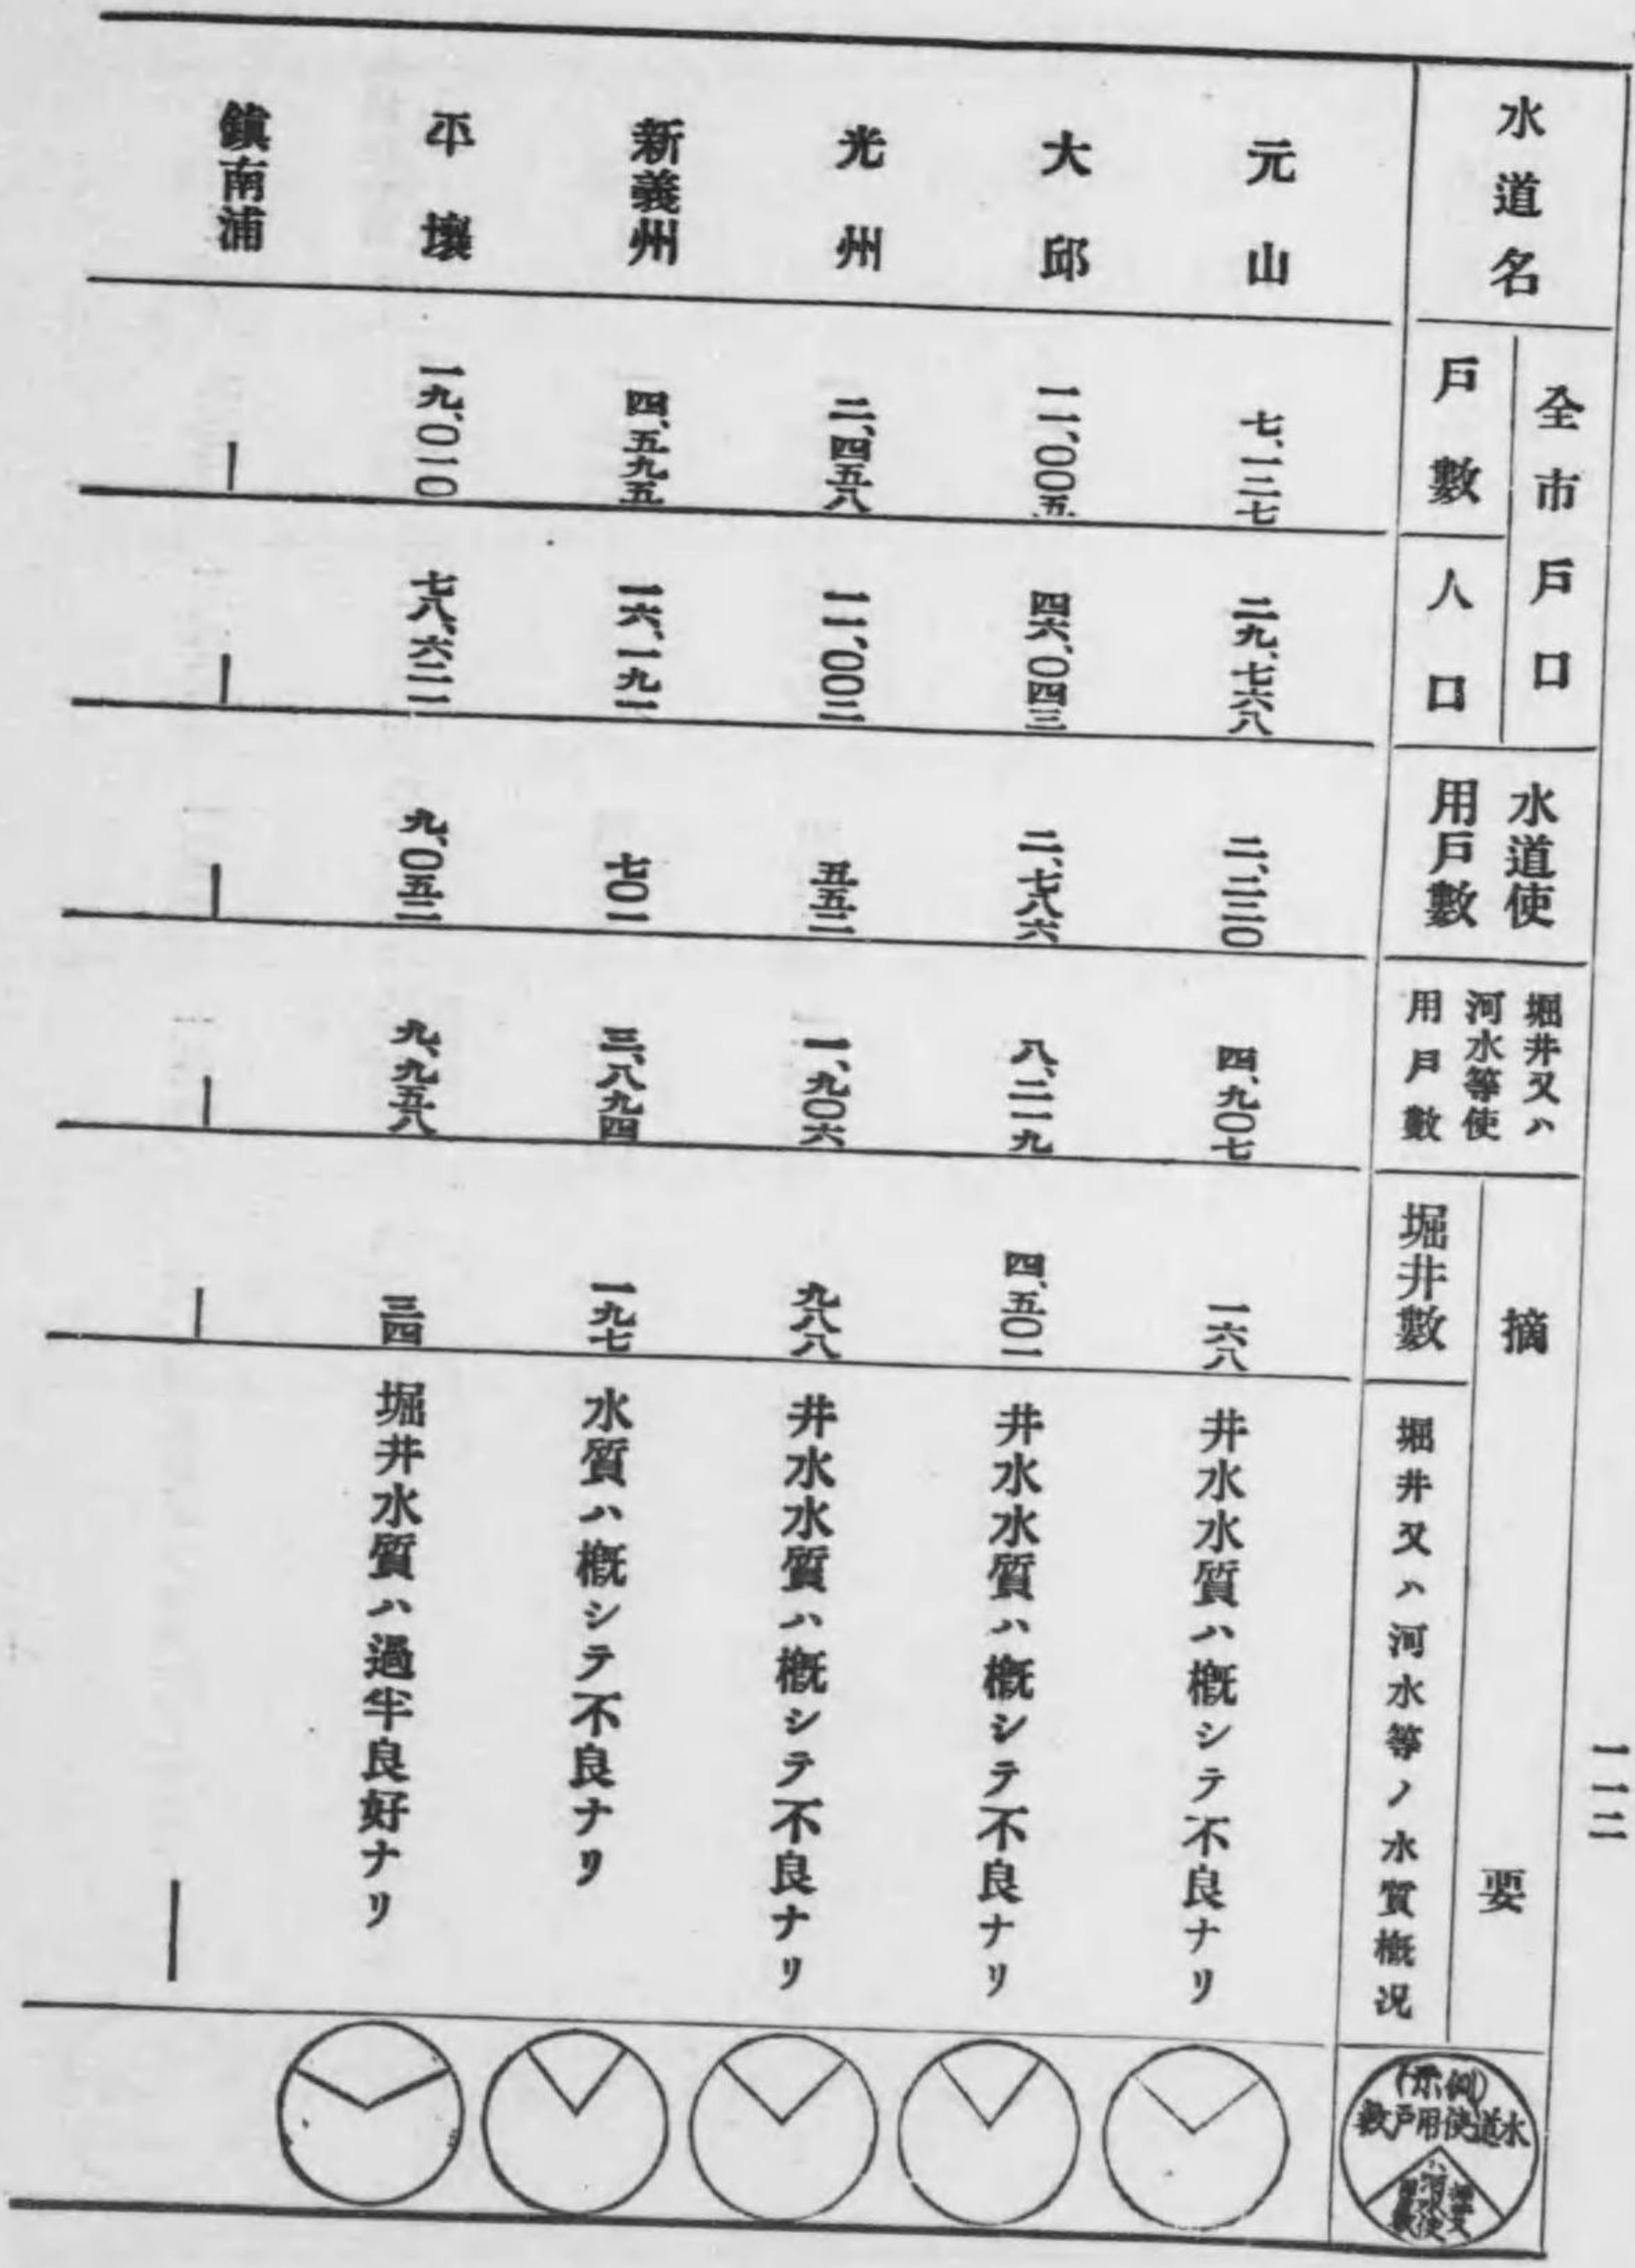 一一二
水道名
全市戶口
戶數
人口
水道使
用戶數
堀井又ハ
河水等使
用戶數
摘要
堀井數
堀井又ハ河水等ノ水質概況
(例示)
水道使用戶數
堀井又
ハ河水使
用戶數
元山 七、一二七 二九、七六八 二、二二〇 四、九〇七 一六八 井水水質ハ概シテ不良ナリ
大邱 一一、〇〇五 四六、〇四三 二、七八六 八、二一九 四、五〇一 井水水質ハ概シテ不良ナリ
光州 二、四五八 一一、〇〇二 五五二 一、九〇六 九八八 井水水質ハ概シテ不良ナリ
新義州 四、五九五 一六、一九一 七〇一 三、八九四 一九七 水質ハ概シテ不良ナリ
平壤 一九、〇一〇 七八、六二一 九、〇五二 九、九五八 三四 堀井水質ハ過半良好ナリ
鎭南浦 ― ― ― ― ― ―